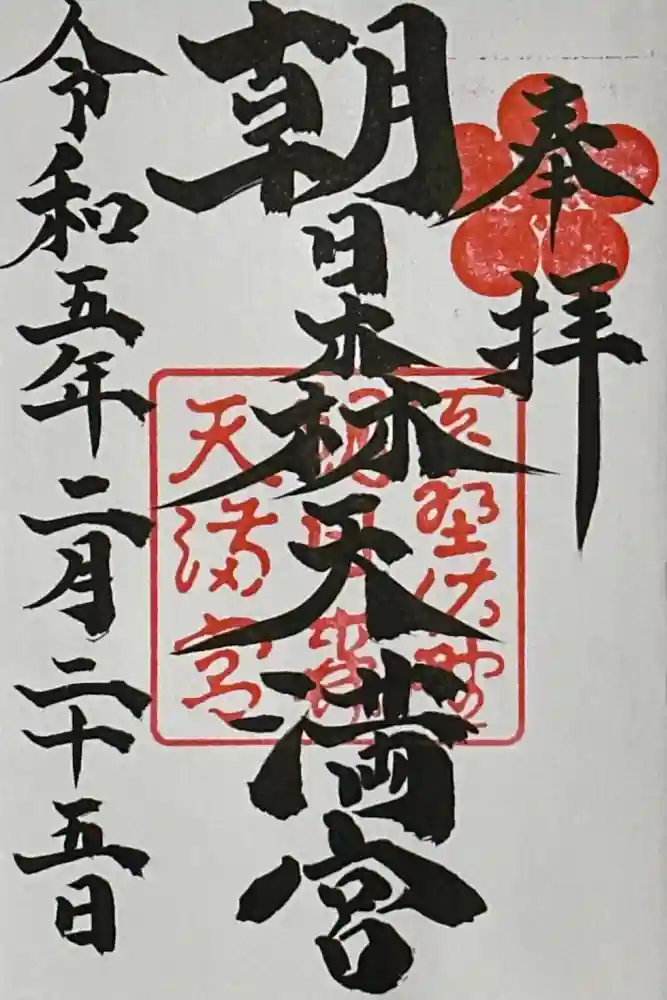 奉拝
朝日森天満宮
天満宮
令和五年二月二十五日